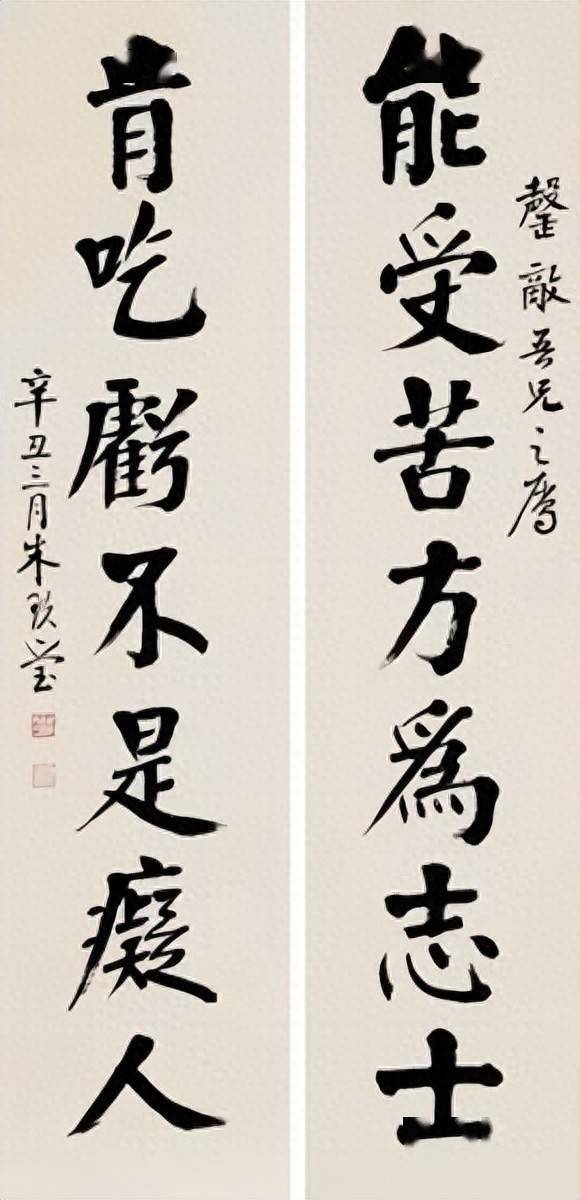 能受苦方為志士
敵吾兄之屬
肯吃虧不是癡人
辛丑三月朱玖瑩